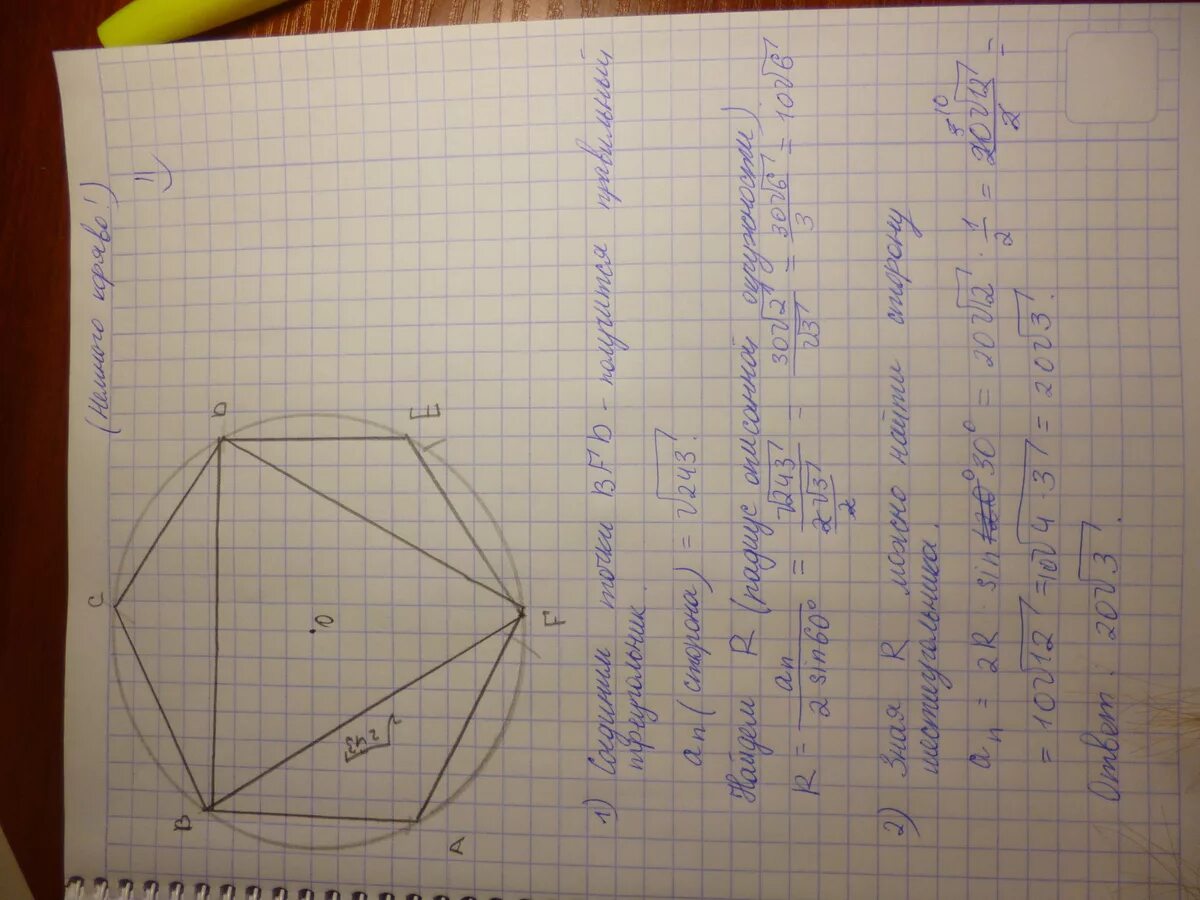 (Немного коряво!)
C
B
D
O
A
E
F
1) Соединим точки BFD - получится правильный
треугольник.
aₙ (сторона) = √243.
Найдем R (радиус описанной окружности)
R = aₙ / 2 sin60° = √243 / (2√3/2) = 30√2 / √3 = 30√6 / 3 = 10√6
2) Зная R можно найти сторону
шестиугольника.
aₙ = 2R · sin 30° = 20√12 · 1/2 = 20√12 / 2 =
= 10√12 = 10√4·3 = 20√3.
Ответ: 20√3.